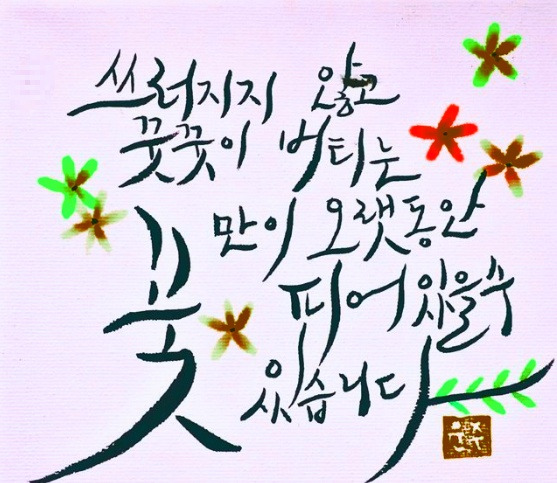 쓰러지지 않고
꿋꿋이 버티는
꽃만이 오랫동안
피어있을수
있습니다